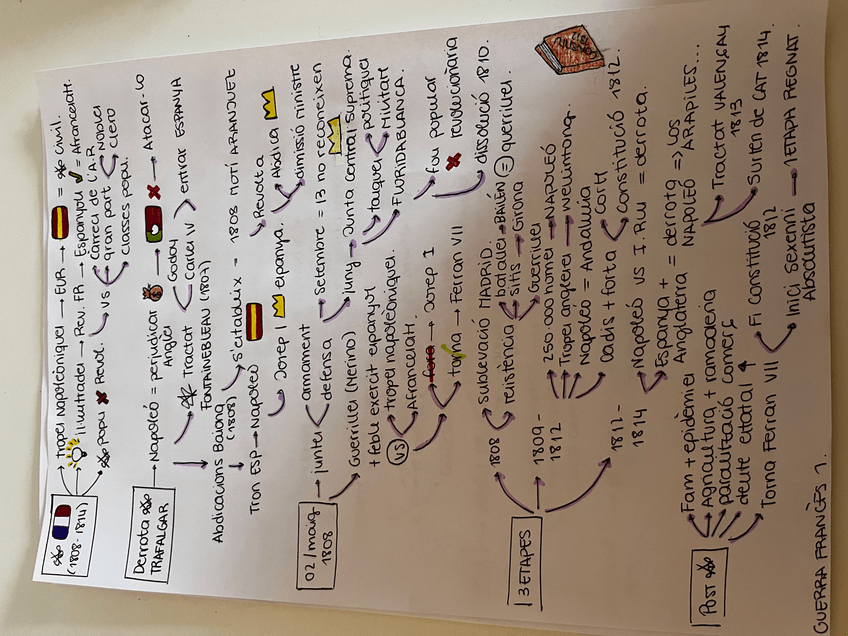 (1808-1814)
→ tropes napoleòniques → EUR → = Civil.
→ Il·lustrades → Rev. FR → Espanyols ✓ = Afrancesats.
popu ✗ Revol. vs
Càrrecs de l'A.R
gran part < Noblesa
Clero
classes popu.
Derrota
TRAFALGAR
→ Napoleó = perjudicar → ✗ → Atacar-lo
Anglesos
Tractat < Godoy
Carles IV > entrar ESPANYA
FONTAINEBLEAU (1807)
Abdicacions Baiona
(1808)
s'estableix = 1808 MOTÍ ARANJUEZ
Revolta
Abdica
dimissió ministre
Tron ESP → Napoleó
Josep I espanya.
02/maig
1808
→ juntes < armament
defensa
Setembre = 13 no reconeixen
Juny → Junta Central Suprema.
tasques < polítiques
Militars
FLORIDABLANCA.
Guerrilles (Merino)
+ feble exèrcit espanyol
vs tropes napoleòniques.
Afrancesats.
fora → Josep I
torna → Ferran VII
fou popular
✗ revolucionària
dissolució 1810.
3 ETAPES
1808
sublevació MADRID.
resistència
batalles → BAILÉN = guerrilles.
sitis → Girona
Guerrilles
1809-
1812
250.000 homes → NAPOLEÓ
Tropes angleses → Wellington.
Napoleó = Andalusia
Cadis + forta < Corts
Constitució 1812.
CONSTITUCIÓ
1812-
1814
Napoleó VS I. Rus = derrota.
Espanya +
Anglaterra = derrota => LOS
NAPOLEÓ ARAPILES...
Tractat VALENÇAY
1813
Surten de CAT 1814.
POST
Fam + epidèmies
Agricultura + ramaderia
paralització comerç
deute estatal ↑
Torna Ferran VII
Fi Constitució
1812
Inici Sexenni → 1 ETAPA REGNAT.
Absolutista
GUERRA FRANCÈS 1.